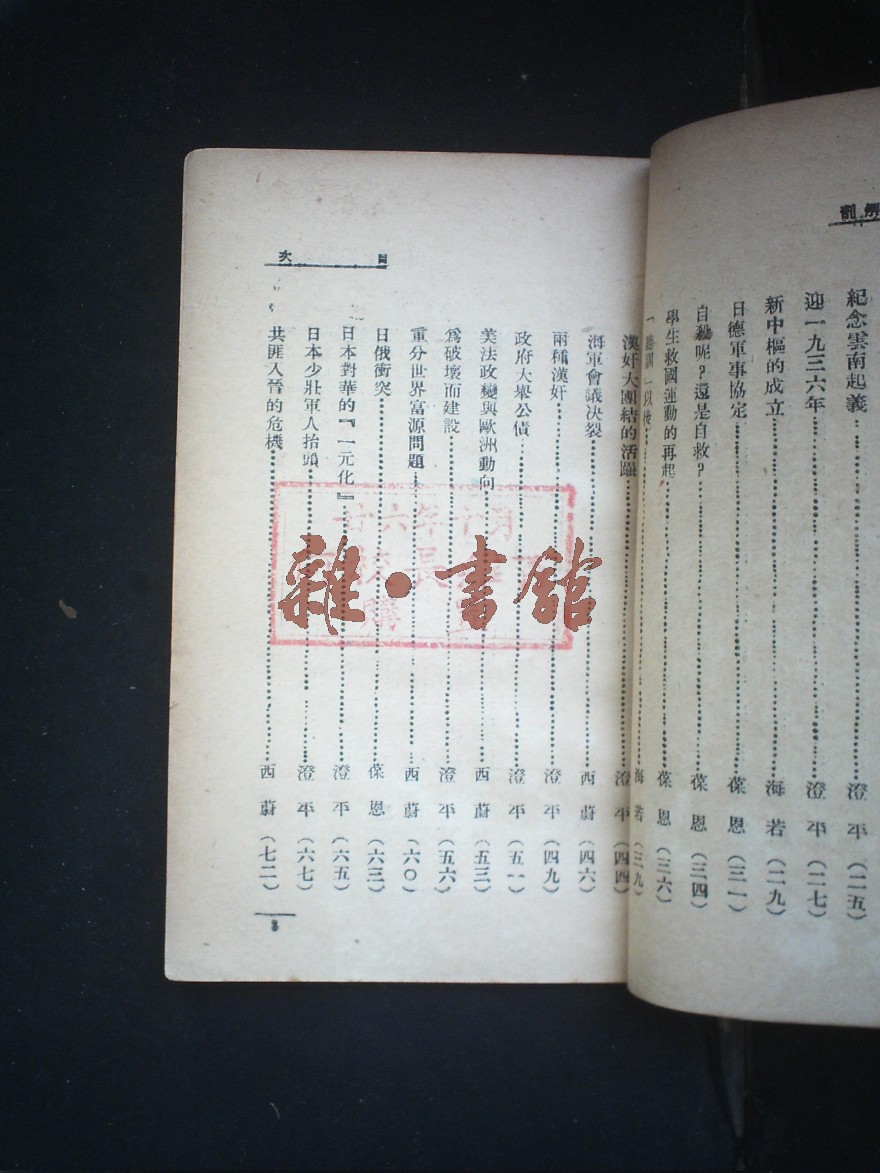 剖解
紀念雲南起義 澄平(二五)
迎一九三六年 澄平(二七)
新中樞的成立 海若(二九)
日德軍事協定 葆恩(三一)
自殺呢?還是自救? 葆恩(三四)
學生救國運動的再起 葆恩(三六)
以後 海若(三九)
目次
漢奸大團結的活躍 澄平(四四)
海軍會議決裂 西蔚(四六)
兩種漢奸 澄平(四九)
政府大舉公債 澄平(五一)
美法政變與歐洲動向 西蔚(五三)
爲破壞而建設 澄平(五六)
重分世界富源問題 西蔚(六〇)
日俄衝突 葆恩(六三)
日本對華的『一元化』 澄平(六五)
日本少壯軍人抬頭 澄平(六七)
共匪入晉的危機 西蔚(七二)
3
廿六年十月
校長
購
雜·書館